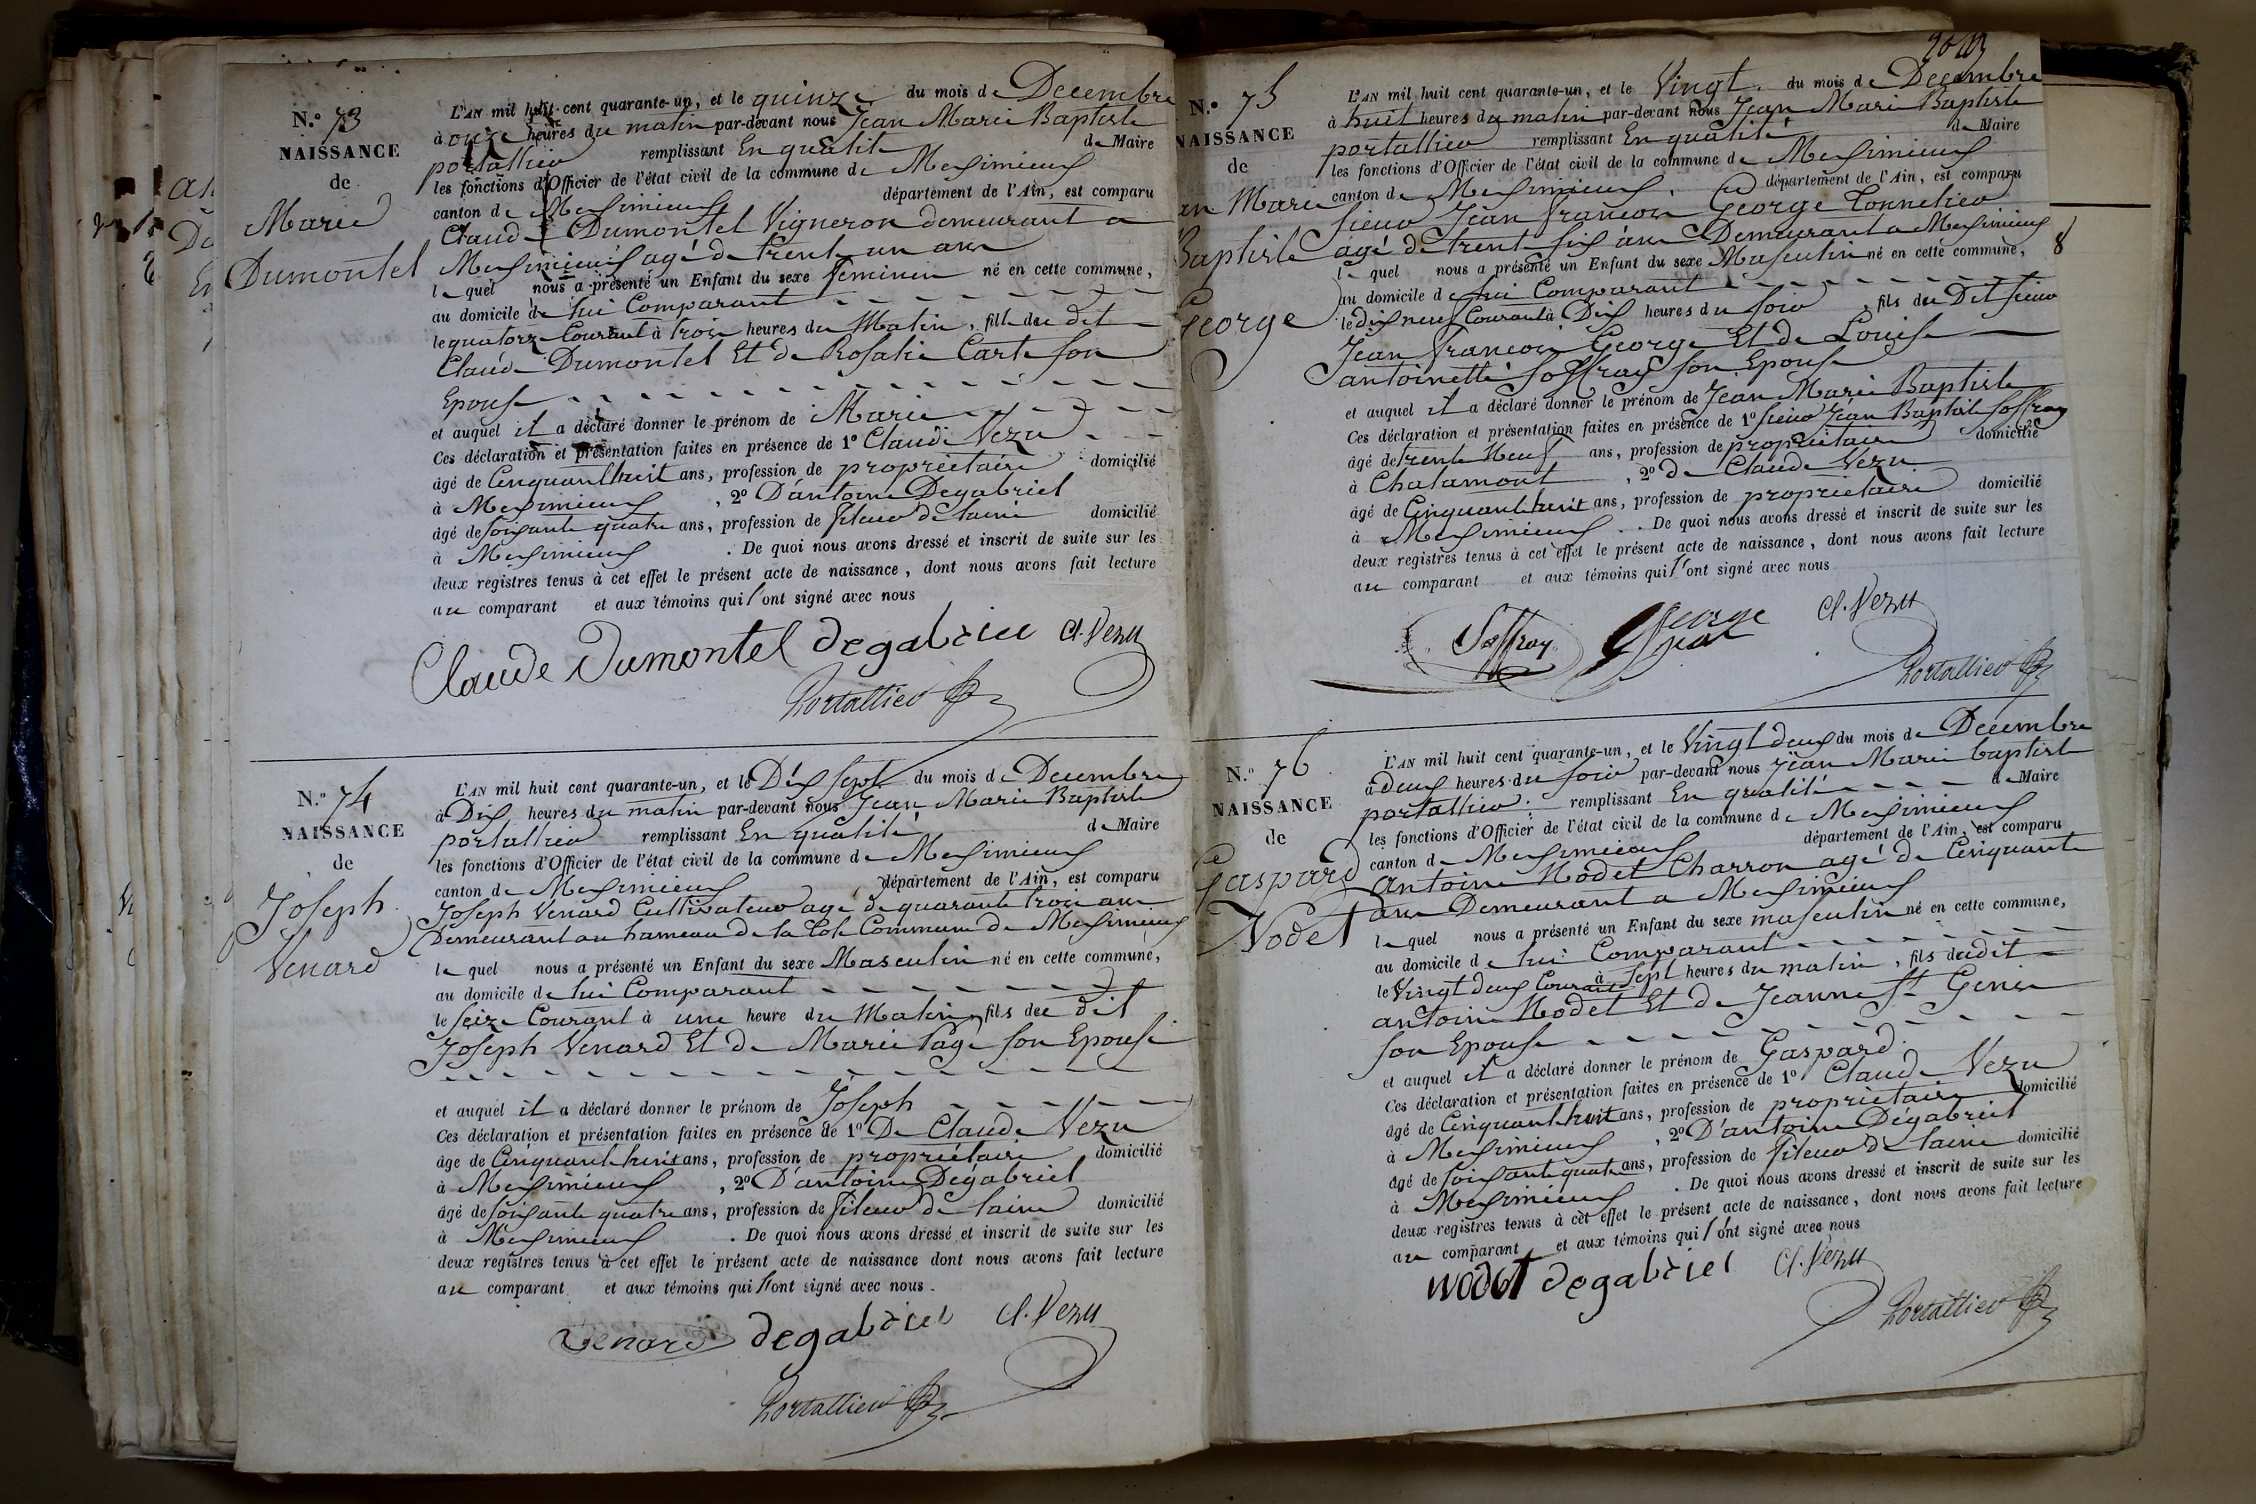 N.° 73
NAISSANCE
de
Marie
Dumontel
L'AN mil huit cent quarante-un, et le quinze du mois de Decembre
à onze heures du matin par-devant nous Jean Marie Baptiste
portallier remplissant En qualité de Maire
les fonctions d'Officier de l'état civil de la commune de Meximieux
canton de Meximieux département de l'Ain, est comparu
Claude Dumontel Vigneron demeurant a
Meximieux agé de trente un ans
lequel nous a présenté un Enfant du sexe feminin né en cette commune,
au domicile de lui Comparant
le quatorze Courant à trois heures du Matin, fille du dit
Claude Dumontel Et de Rosalie Carte son
Epouse
et auquel il a déclaré donner le prénom de Marie
Ces déclaration et présentation faites en présence de 1° Claude Vezu
âgé de Cinquante huit ans, profession de propriétaire domicilié
à Meximieux, 2° D'antoine Degabriel
âgé de soixante quatre ans, profession de fileur de laine domicilié
à Meximieux. De quoi nous avons dressé et inscrit de suite sur les
deux registres tenus à cet effet le présent acte de naissance, dont nous avons fait lecture
au comparant et aux témoins qui l'ont signé avec nous
Claude Dumontel degabriel Cl. Vezu
Portallier
N.° 74
NAISSANCE
de
Joseph
Venard
L'AN mil huit cent quarante-un, et le Dix sept du mois de Decembre
à Dix heures du matin par-devant nous Jean Marie Baptiste
portallier remplissant En qualité de Maire
les fonctions d'Officier de l'état civil de la commune de Meximieux
canton de Meximieux, département de l'Ain, est comparu
Joseph Venard Cultivateur agé de quarante trois ans
Demeurant au hameau de la Cote Commune de Meximieux
lequel nous a présenté un Enfant du sexe Masculin né en cette commune,
au domicile de lui Comparant
le seize Courant à une heure du Matin, fils du dit
Joseph Venard Et de Marie Page son Epouse
et auquel il a déclaré donner le prénom de Joseph
Ces déclaration et présentation faites en présence de 1° De Claude Vezu
âgé de Cinquante huit ans, profession de propriétaire domicilié
à Meximieux, 2° D'antoine Dégabriel
âgé de soixante quatre ans, profession de fileur de laine domicilié
à Meximieux. De quoi nous avons dressé et inscrit de suite sur les
deux registres tenus à cet effet le présent acte de naissance dont nous avons fait lecture
au comparant et aux témoins qui l'ont signé avec nous.
Venard degabriel Cl. Vezu
Portallier
N.° 75
NAISSANCE
de
Marie
Baptiste
George
L'AN mil huit cent quarante-un, et le Vingt du mois de Decembre
à huit heures du matin par-devant nous Jean Marie Baptiste
portallier remplissant En qualité de Maire
les fonctions d'Officier de l'état civil de la commune de Meximieux
canton de Meximieux, département de l'Ain, est comparu
sieur Jean françois George Tonnelier
agé de trente six ans Demeurant a Meximieux
lequel nous a présenté un Enfant du sexe Masculin né en cette commune,
au domicile de lui Comparant
le dix neuf Courant à Dix heures du soir, fils du Dit sieur
Jean françois George Et de Louise
antoinette soffray son Epouse
et auquel il a déclaré donner le prénom de Jean Marie Baptiste
Ces déclaration et présentation faites en présence de 1° sieur Jean Baptiste soffray
âgé de trente Neuf ans, profession de propriétaire domicilié
à Chalamont, 2° de Claude Vezu
âgé de Cinquante huit ans, profession de propriétaire domicilié
à Meximieux. De quoi nous avons dressé et inscrit de suite sur les
deux registres tenus à cet effet le présent acte de naissance, dont nous avons fait lecture
au comparant et aux témoins qui l'ont signé avec nous
Soffray George Cl. Vezu
Portallier
N.° 76
NAISSANCE
de
Gaspard
Nodet
L'AN mil huit cent quarante-un, et le Vingt deux du mois de Decembre
à deux heures du soir par-devant nous Jean Marie baptiste
portallier. remplissant En qualité de Maire
les fonctions d'Officier de l'état civil de la commune de Meximieux
canton de Meximieux département de l'Ain, est comparu
antoine Nodet Charron agé de Cinquante
ans Demeurant a Meximieux
lequel nous a présenté un Enfant du sexe masculin né en cette commune,
au domicile de lui Comparant
le Vingt deux Courant à sept heures du matin, fils du dit
antoine Nodet Et de Jeanne St Genis
son Epouse
et auquel il a déclaré donner le prénom de Gaspard
Ces déclaration et présentation faites en présence de 1° Claude Vezu
âgé de Cinquante huit ans, profession de propriétaire domicilié
à Meximieux, 2° D'antoine Dégabriel
âgé de soixante quatre ans, profession de fileur de laine domicilié
à Meximieux. De quoi nous avons dressé et inscrit de suite sur les
deux registres tenus à cet effet le présent acte de naissance, dont nous avons fait lecture
au comparant et aux témoins qui l'ont signé avec nous
Nodet degabriel Cl. Vezu
Portallier
8